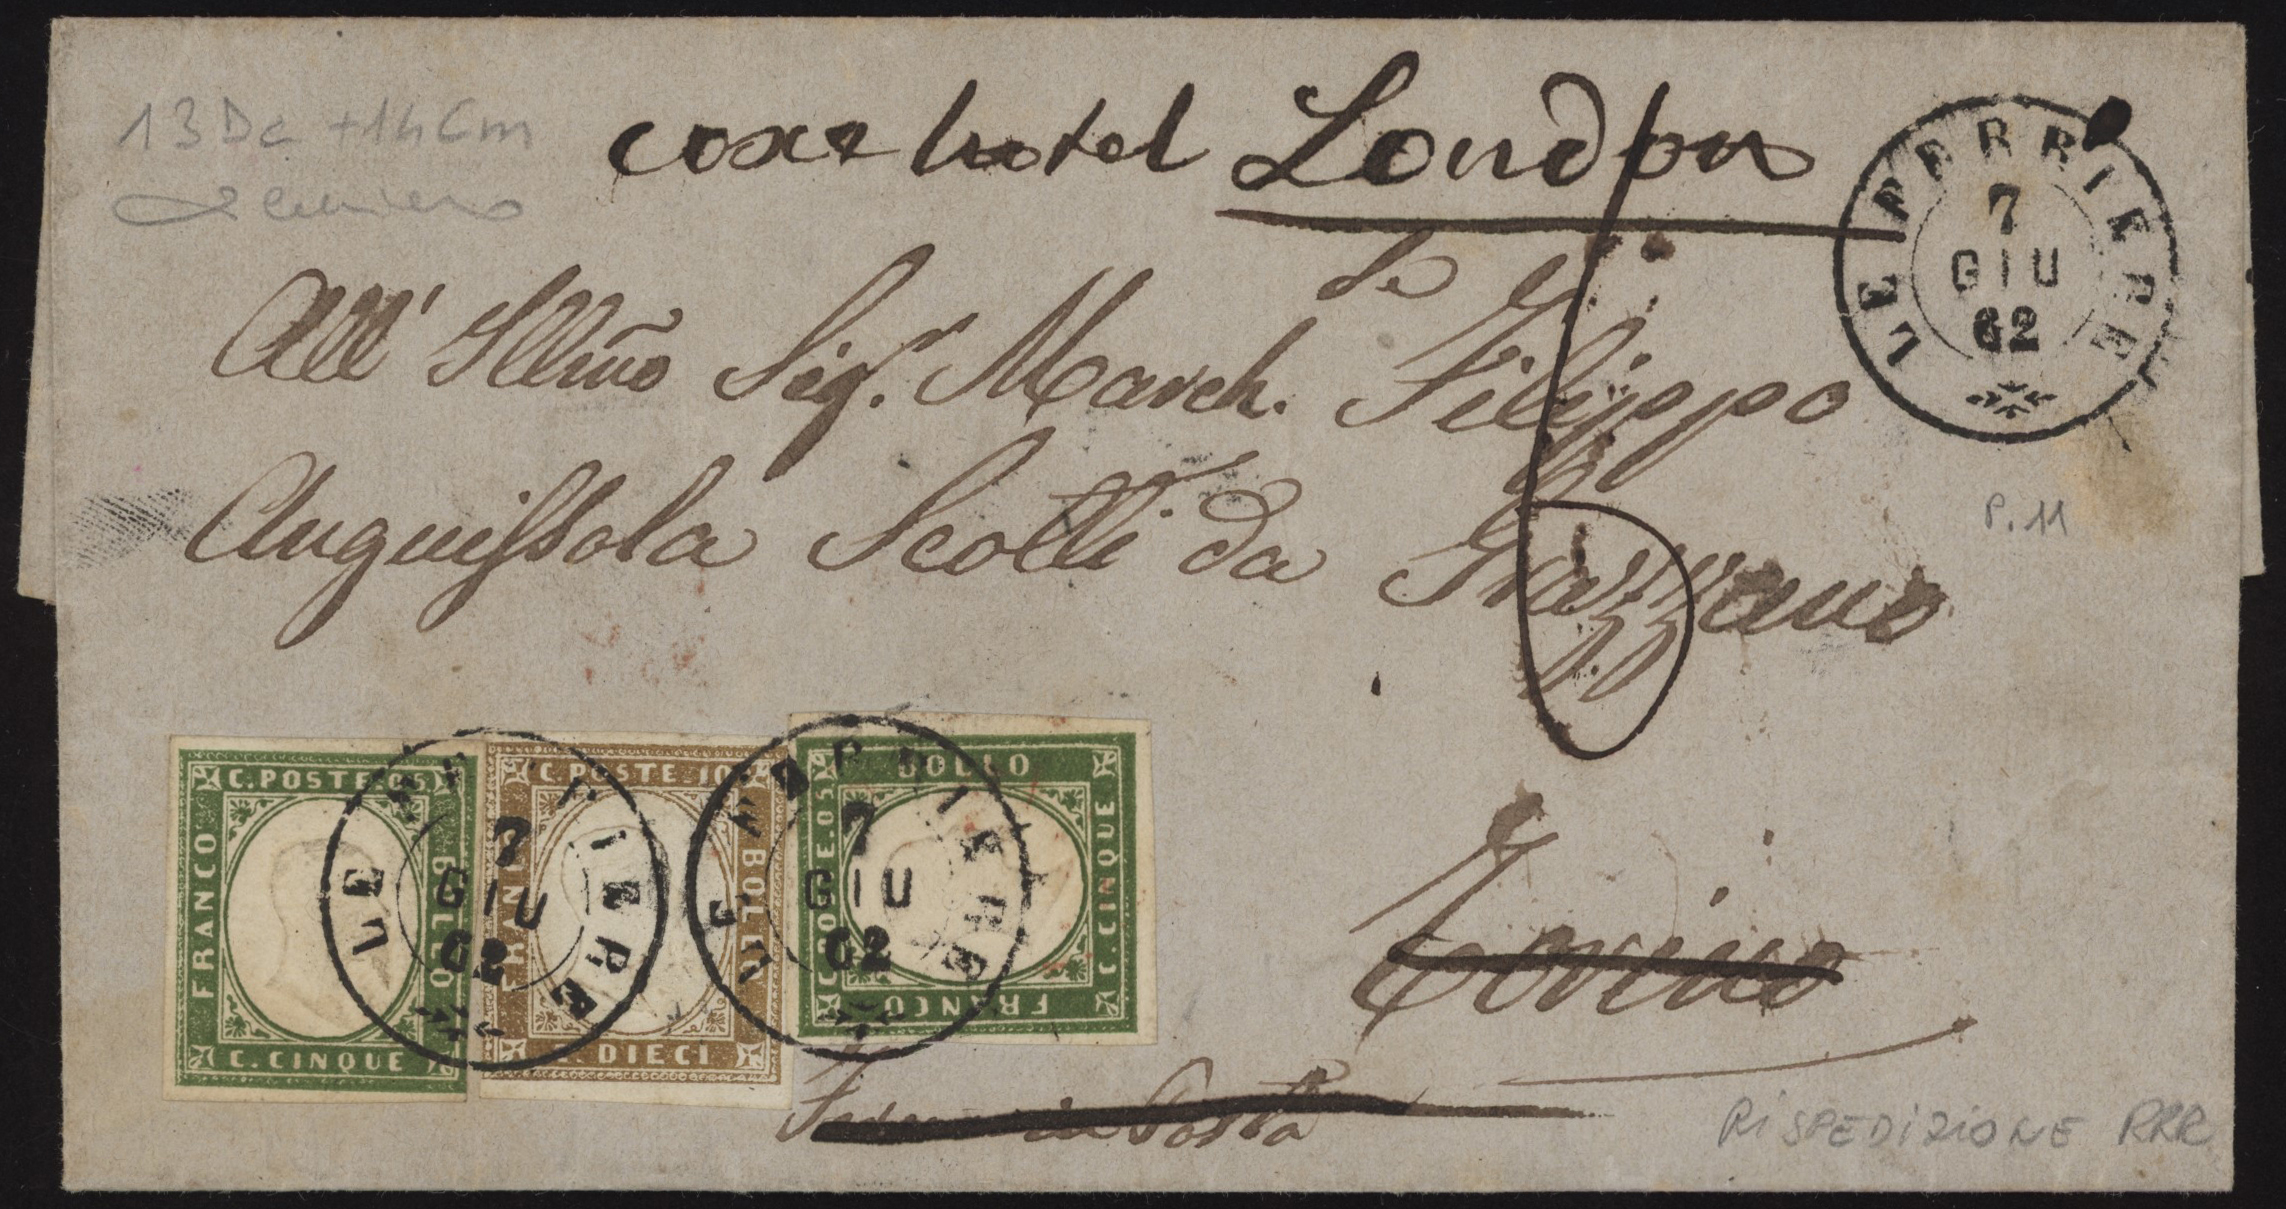 13Da + 14Cm
coxe hotel London
LE FERRIERE
7
GIU
62
de
All' Illmo Sigr. March. Filippo
Anguissola Scotti da Grazzano
P. 11
Torino
in Posta
C. POSTE 05
FRANCO
BOLLO
C. CINQUE
C. POSTE 10
FRANCO
BOLLO
C. DIECI
LE FERRIERE
7
GIU
62
BOLLO
C. POSTE. 05
C. CINQUE
FRANCO
LE FERRIERE
7
GIU
62
RISPEDIZIONE RRR